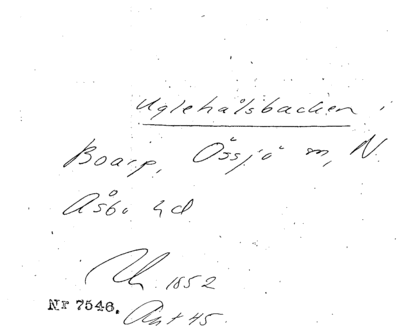 Uglehålsbacken i
Boarp, Össjö sn, N.
Åsbo hd
1852
Nr 7546. Ant 45